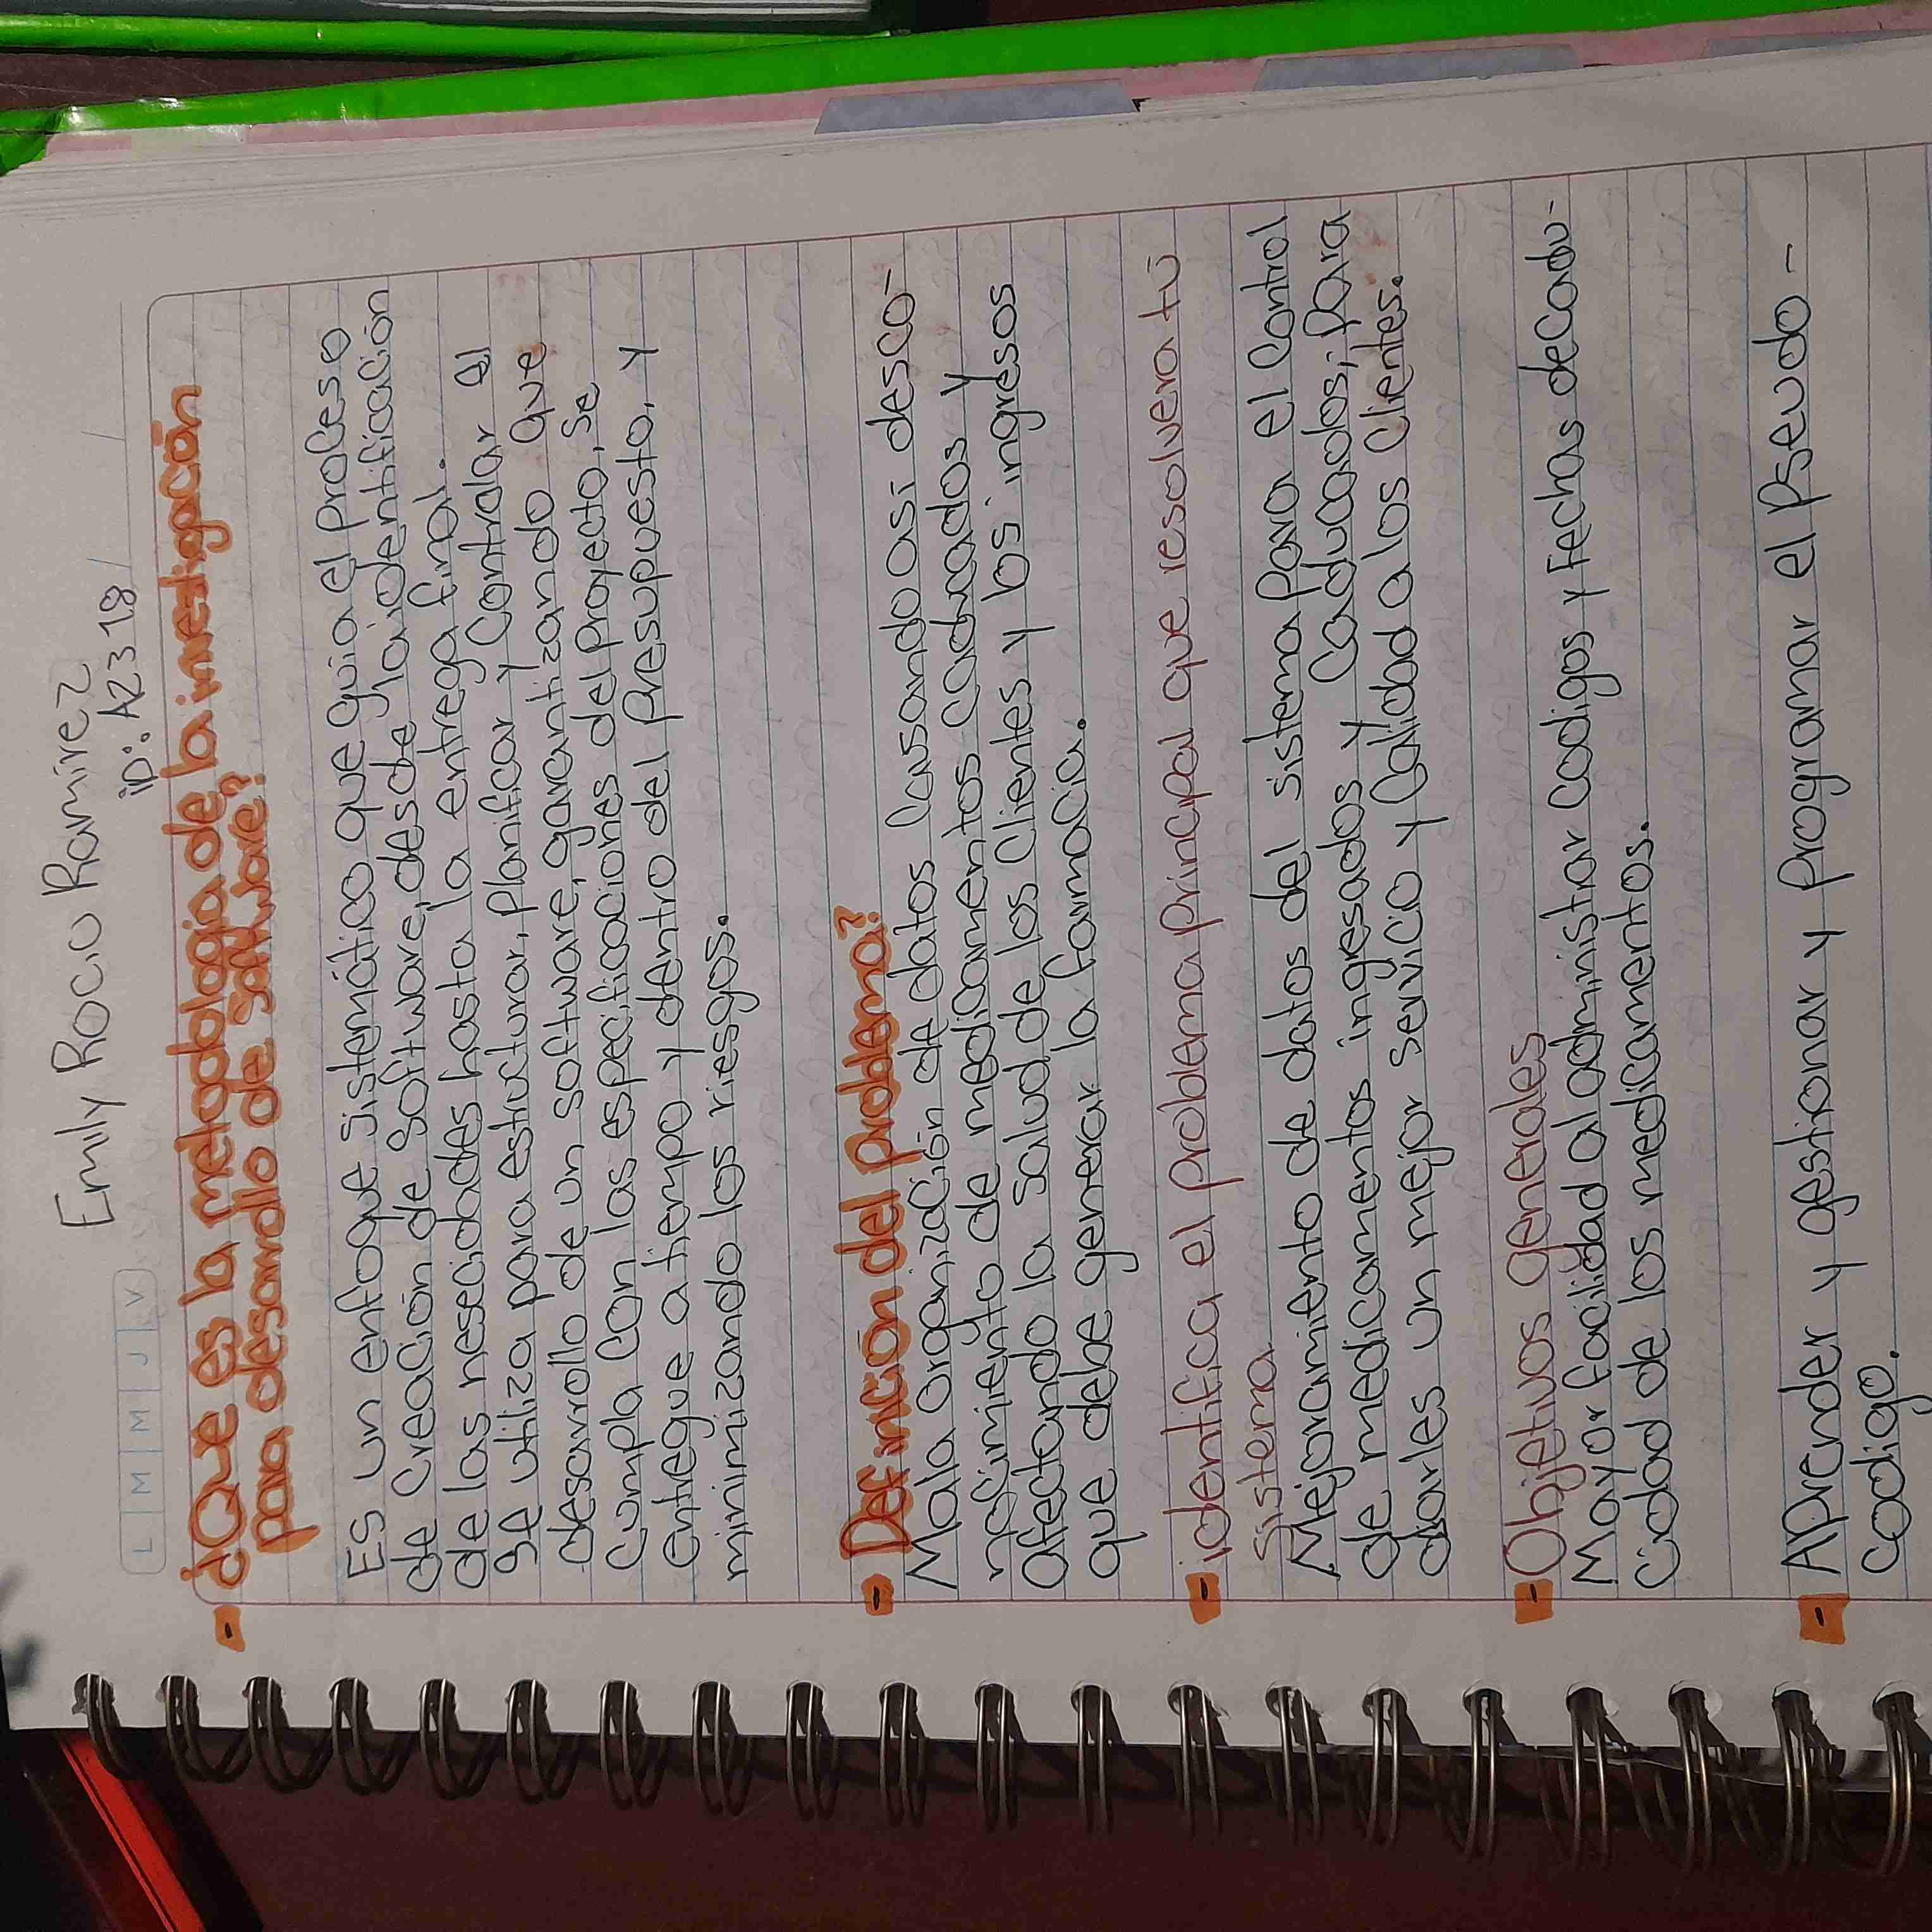 Emily Rocio Ramirez
iD: A23718
L M M J V
- ¿Que es la metodologia de la investigación
para desarrollo de software?
ES un enfoque sistemático que guia el proceso
de creación de software, desde la identificación
de las nesecidades hasta la entrega final.
Se utiliza para estructurar, planificar y controlar el
desarrollo de un software, garantizando que
cumpla con las especificaciones del proyecto, se
entregue a tiempo y dentro del presupuesto, y
minimizando los riesgos.
- Definición del problema?
Mala organización de datos causando asi desco-
nocimiento de medicamentos caducados y
afectando la salud de los clientes y los ingresos
que debe generar la farmacia.
- identifica el problema principal que resolvera tú
sistema
Mejoramiento de datos del sistema para el control
de medicamentos ingresados y caducados; para
darles un mejor servicio y calidad a los clientes.
- Objetivos generales
Mayor facilidad al administrar codigos y fechas de cadu-
cidad de los medicamentos.
- Aprender y gestionar y programar el Pseudo-
codigo.